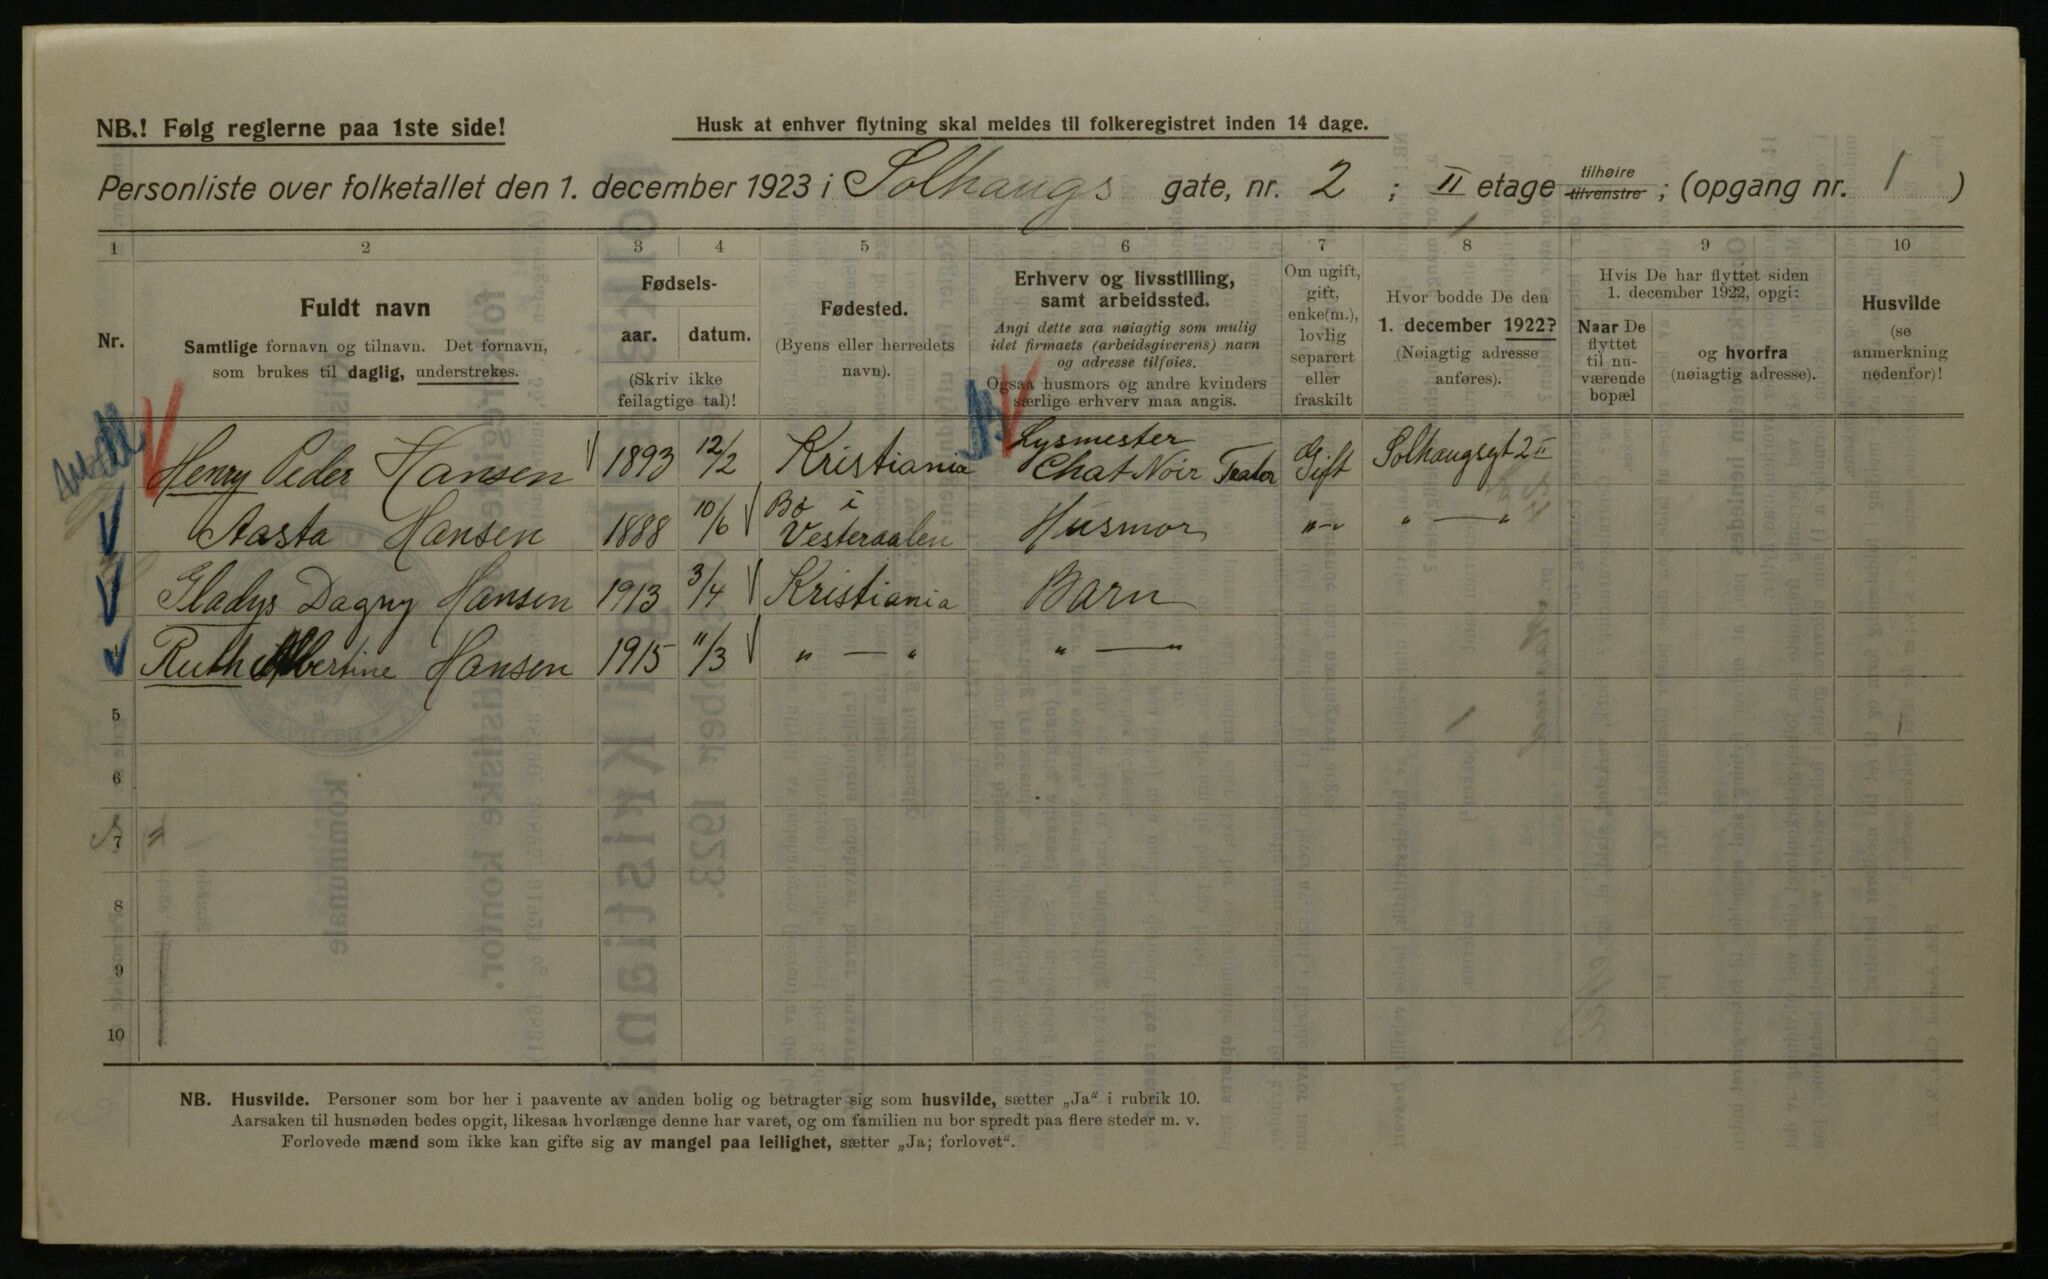 NB.! Følg reglerne paa 1ste side!
Husk at enhver flytning skal meldes til folkeregistret inden 14 dage.
Personliste over folketallet den 1. december 1923 i Solhaugs gate, nr. 2 ; II etage tilhøire tilvenstre ; (opgang nr. 1 )
1 2 3 4 5 6 7 8 9 10
Nr.
Fuldt navn
Samtlige fornavn og tilnavn. Det fornavn,
som brukes til daglig, understrekes.
Fødsels-
aar. datum.
(Skriv ikke
feilagtige tal)!
Fødested.
(Byens eller herredets
navn).
Erhverv og livsstilling,
samt arbeidssted.
Angi dette saa nøiagtig som mulig
idet firmaets (arbeidsgiverens) navn
og adresse tilføies.
Ogsaa husmors og andre kvinders
særlige erhverv maa angis.
Om ugift,
gift,
enke(m.),
lovlig
separert
eller
fraskilt
Hvor bodde De den
1. december 1922?
(Nøiagtig adresse
anføres).
Hvis De har flyttet siden
1. december 1922, opgi:
Naar De
flyttet
til nu-
værende
bopæl
og hvorfra
(nøiagtig adresse).
Husvilde
(se
anmerkning
nedenfor)!
Henry Peder Hansen 1893 12/2 Kristiania Lysmester Chat Noir Teater Gift Solhaugsgt 2 II
Aasta Hansen 1888 10/6 Bø i Vesteraalen Husmor „ — „ „ — „
Gladys Dagny Hansen 1913 3/4 Kristiania Barn
4 Ruth Albertine Hansen 1915 11/3 „ — „ „ — „
5
6
7
8
9
10
NB. Husvilde. Personer som bor her i paavente av anden bolig og betragter sig som husvilde, sætter „Ja“ i rubrik 10.
Aarsaken til husnøden bedes opgit, likesaa hvorlænge denne har varet, og om familien nu bor spredt paa flere steder m. v.
Forlovede mænd som ikke kan gifte sig av mangel paa leilighet, sætter „Ja; forlovet“.